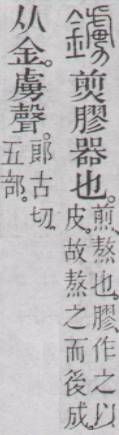 鐪 煎膠器也。煎、熬也。膠、作之以
皮。故熬之而後成。
从金。虜聲。郎古切。
五部。